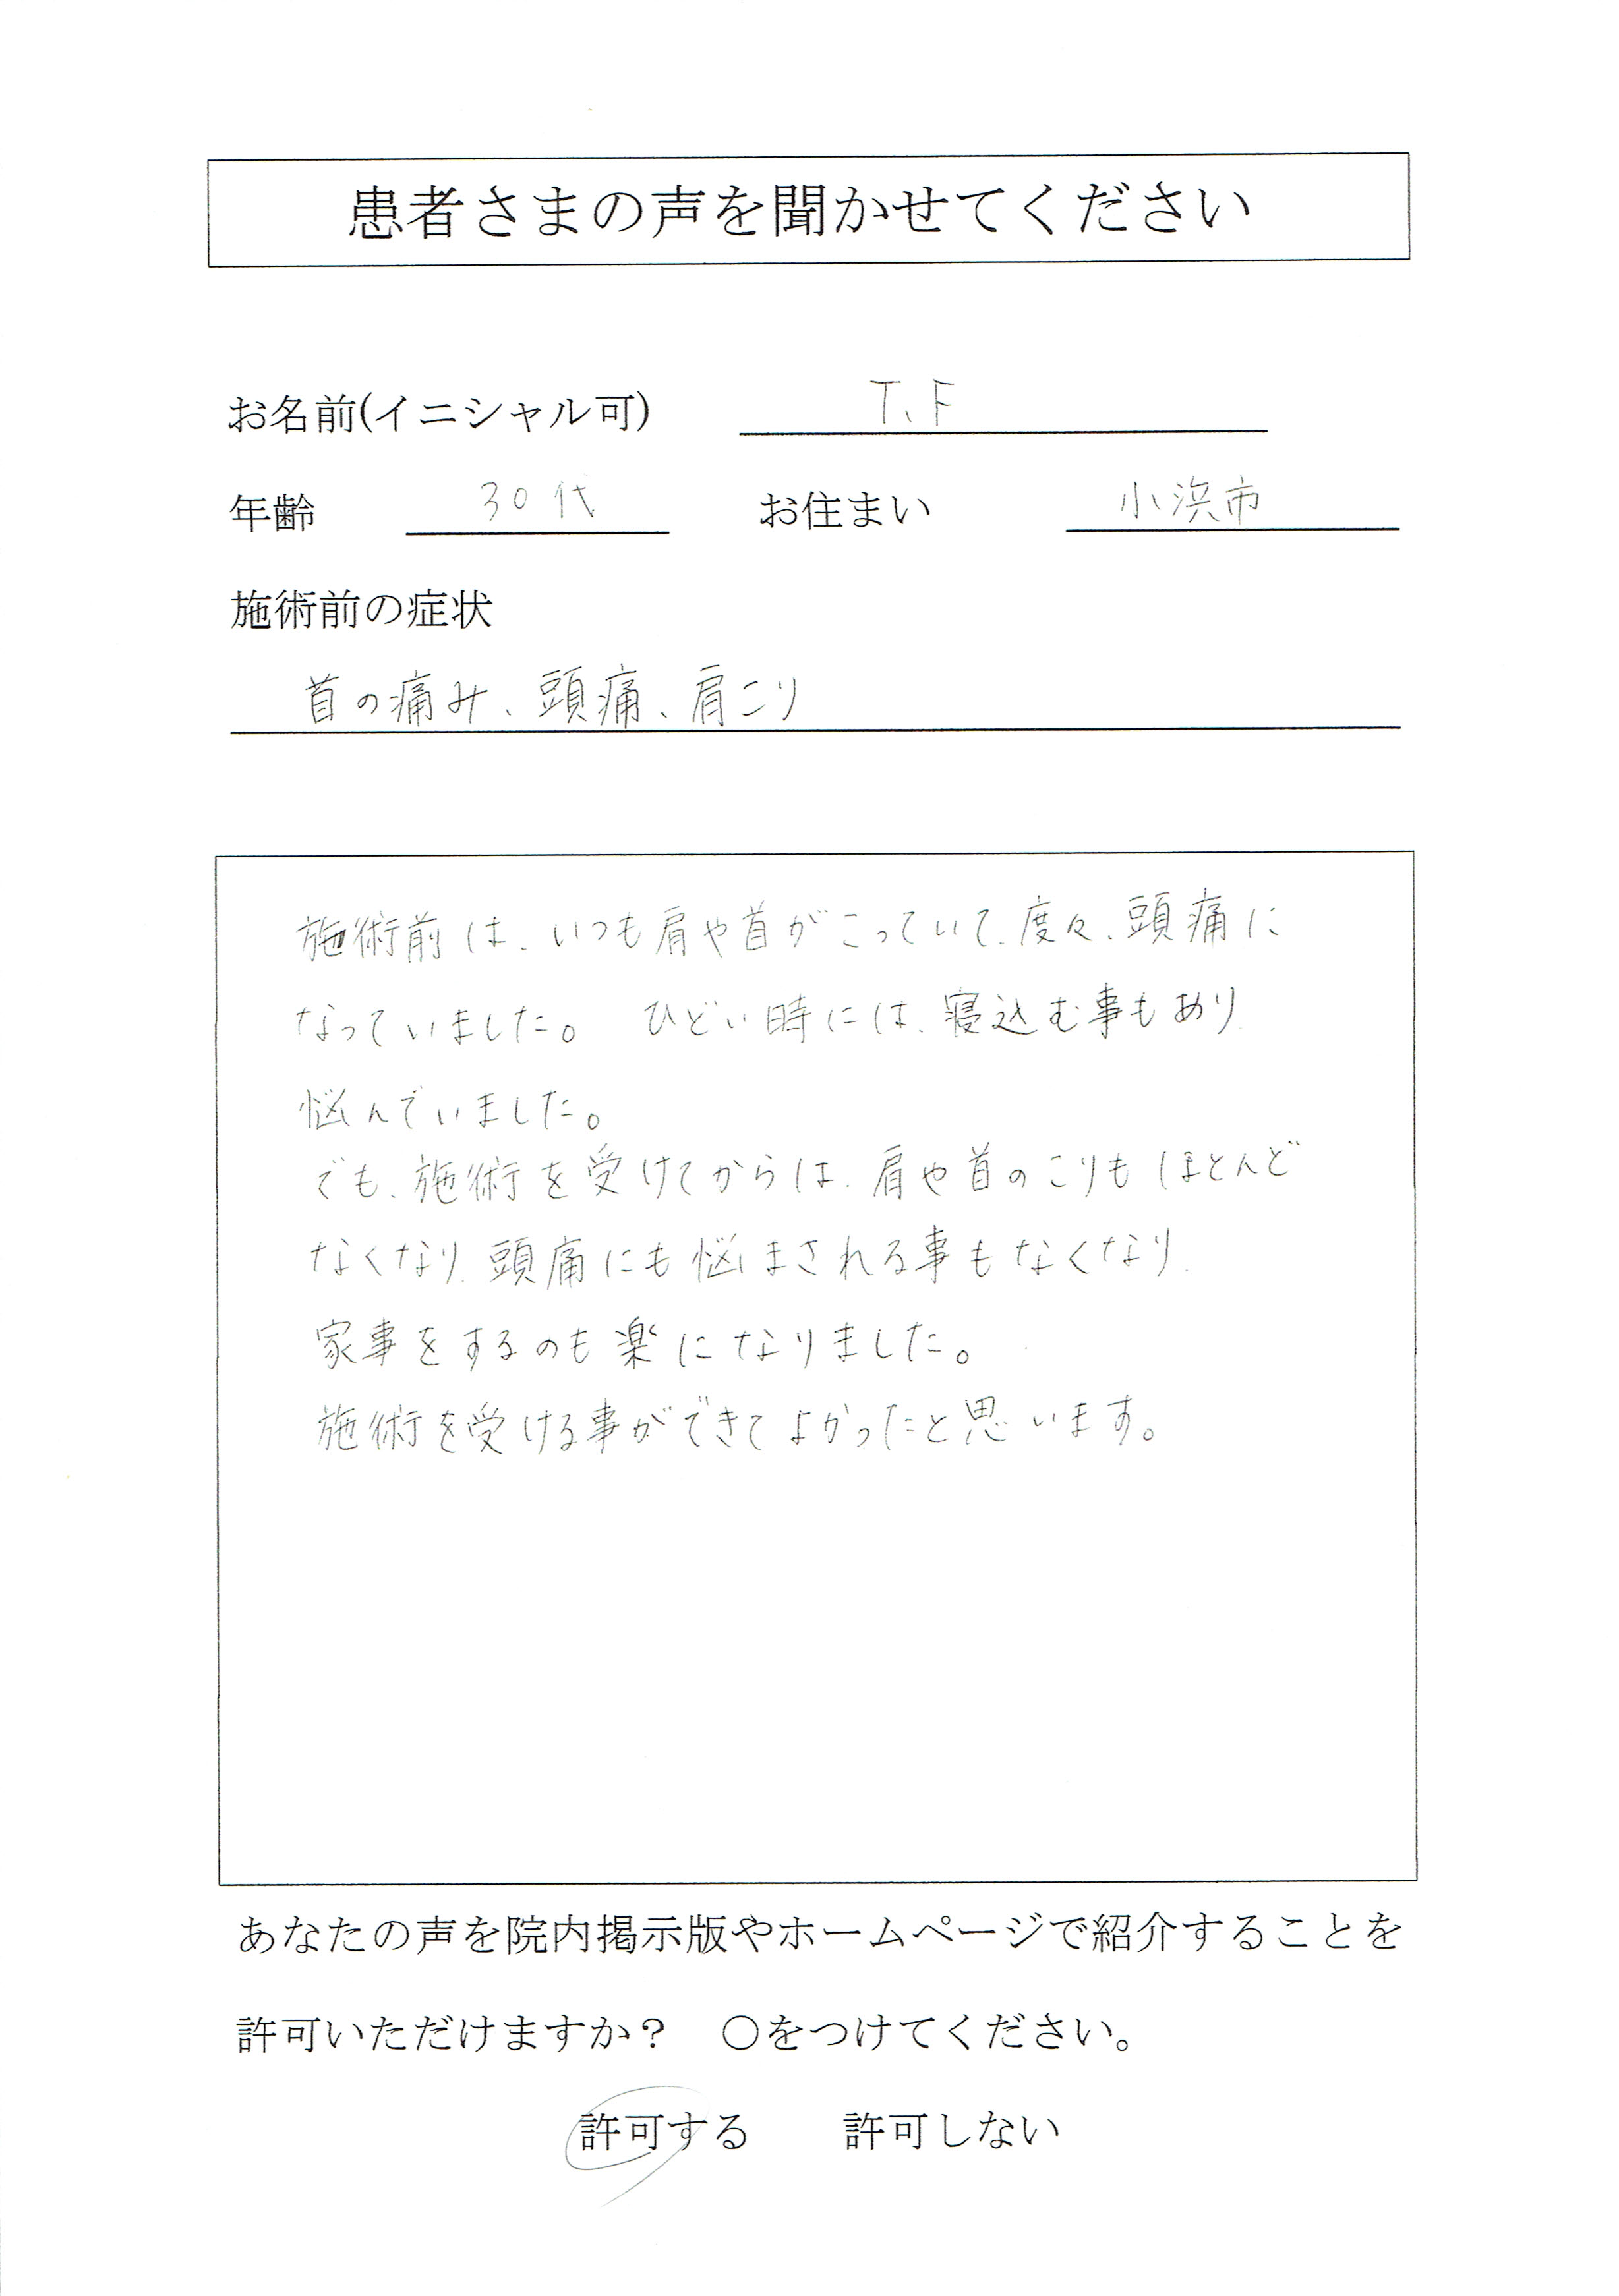 患者さまの声を聞かせてください
お名前(イニシャル可) T.F
年齢 30代 お住まい 小浜市
施術前の症状
首の痛み、頭痛、肩こり
施術前は、いつも肩や首がこっていて、度々、頭痛に
なっていました。 ひどい時には、寝込む事もあり
悩んでいました。
でも、施術を受けてからは、肩や首のこりもほとんど
なくなり、頭痛にも悩まされる事もなくなり、
家事をするのも楽になりました。
施術を受ける事ができてよかったと思います。
あなたの声を院内掲示版やホームページで紹介することを
許可いただけますか? ○をつけてください。
許可する 許可しない